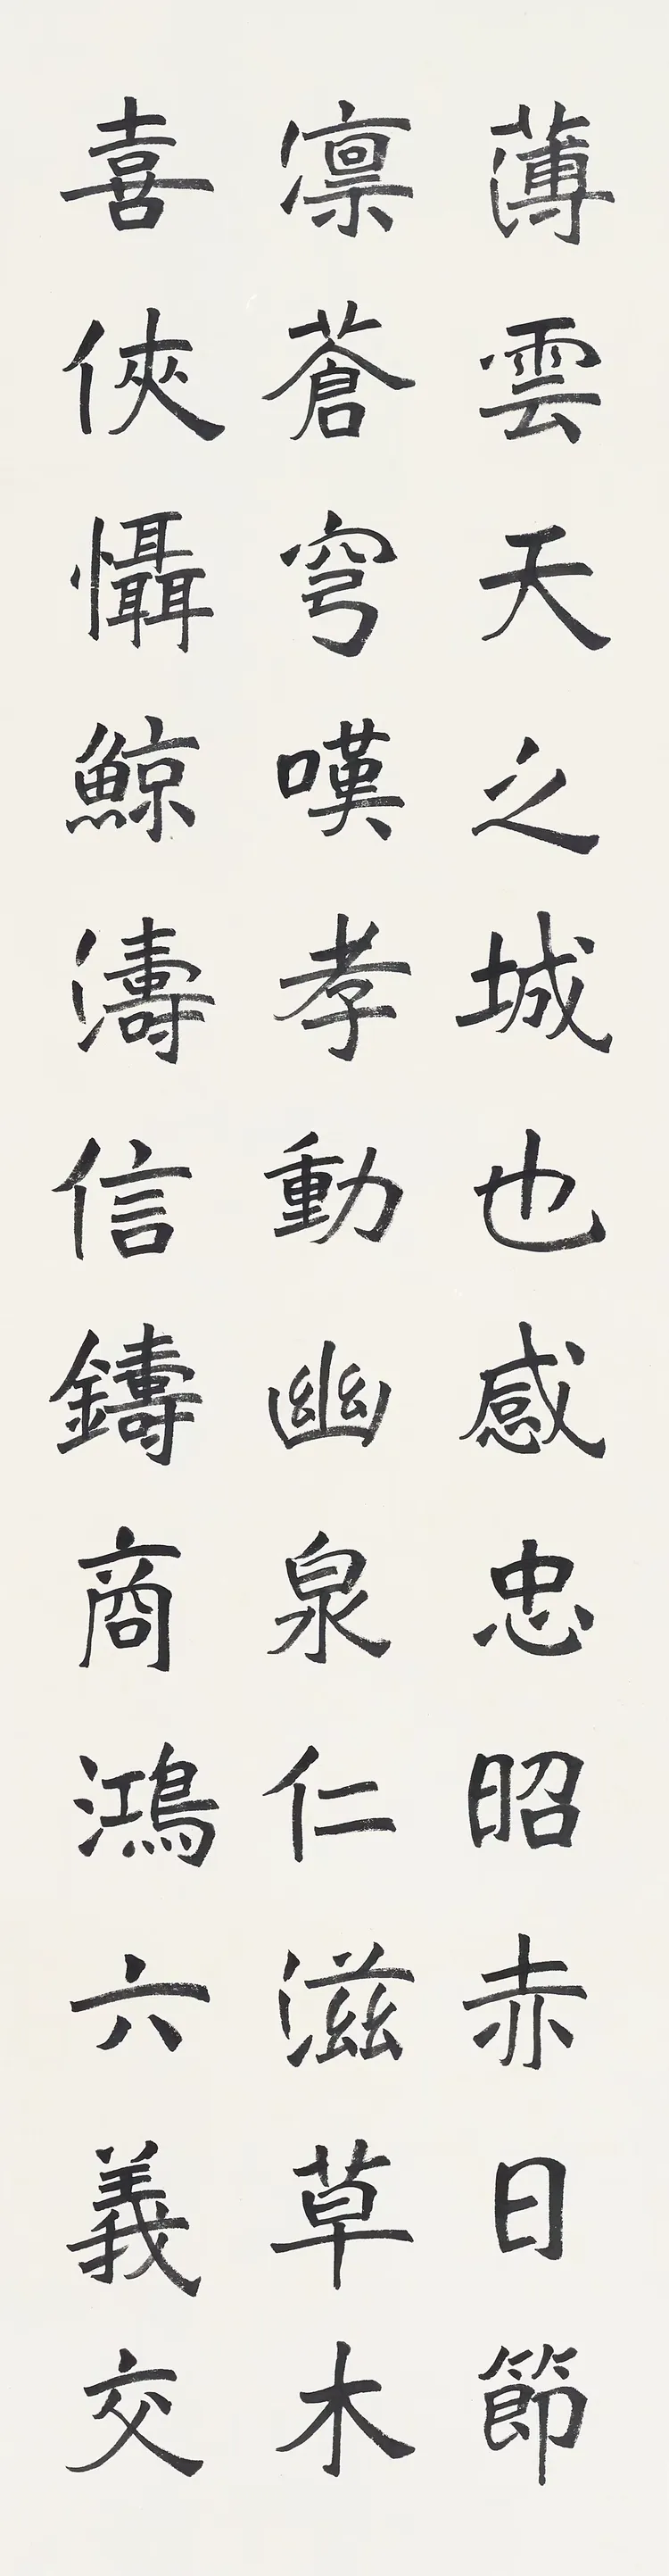 薄雲天之城也感忠昭赤日節
凛蒼穹嘆孝動幽泉仁滋草木
喜俠懾鯨濤信鑄商鴻六義交